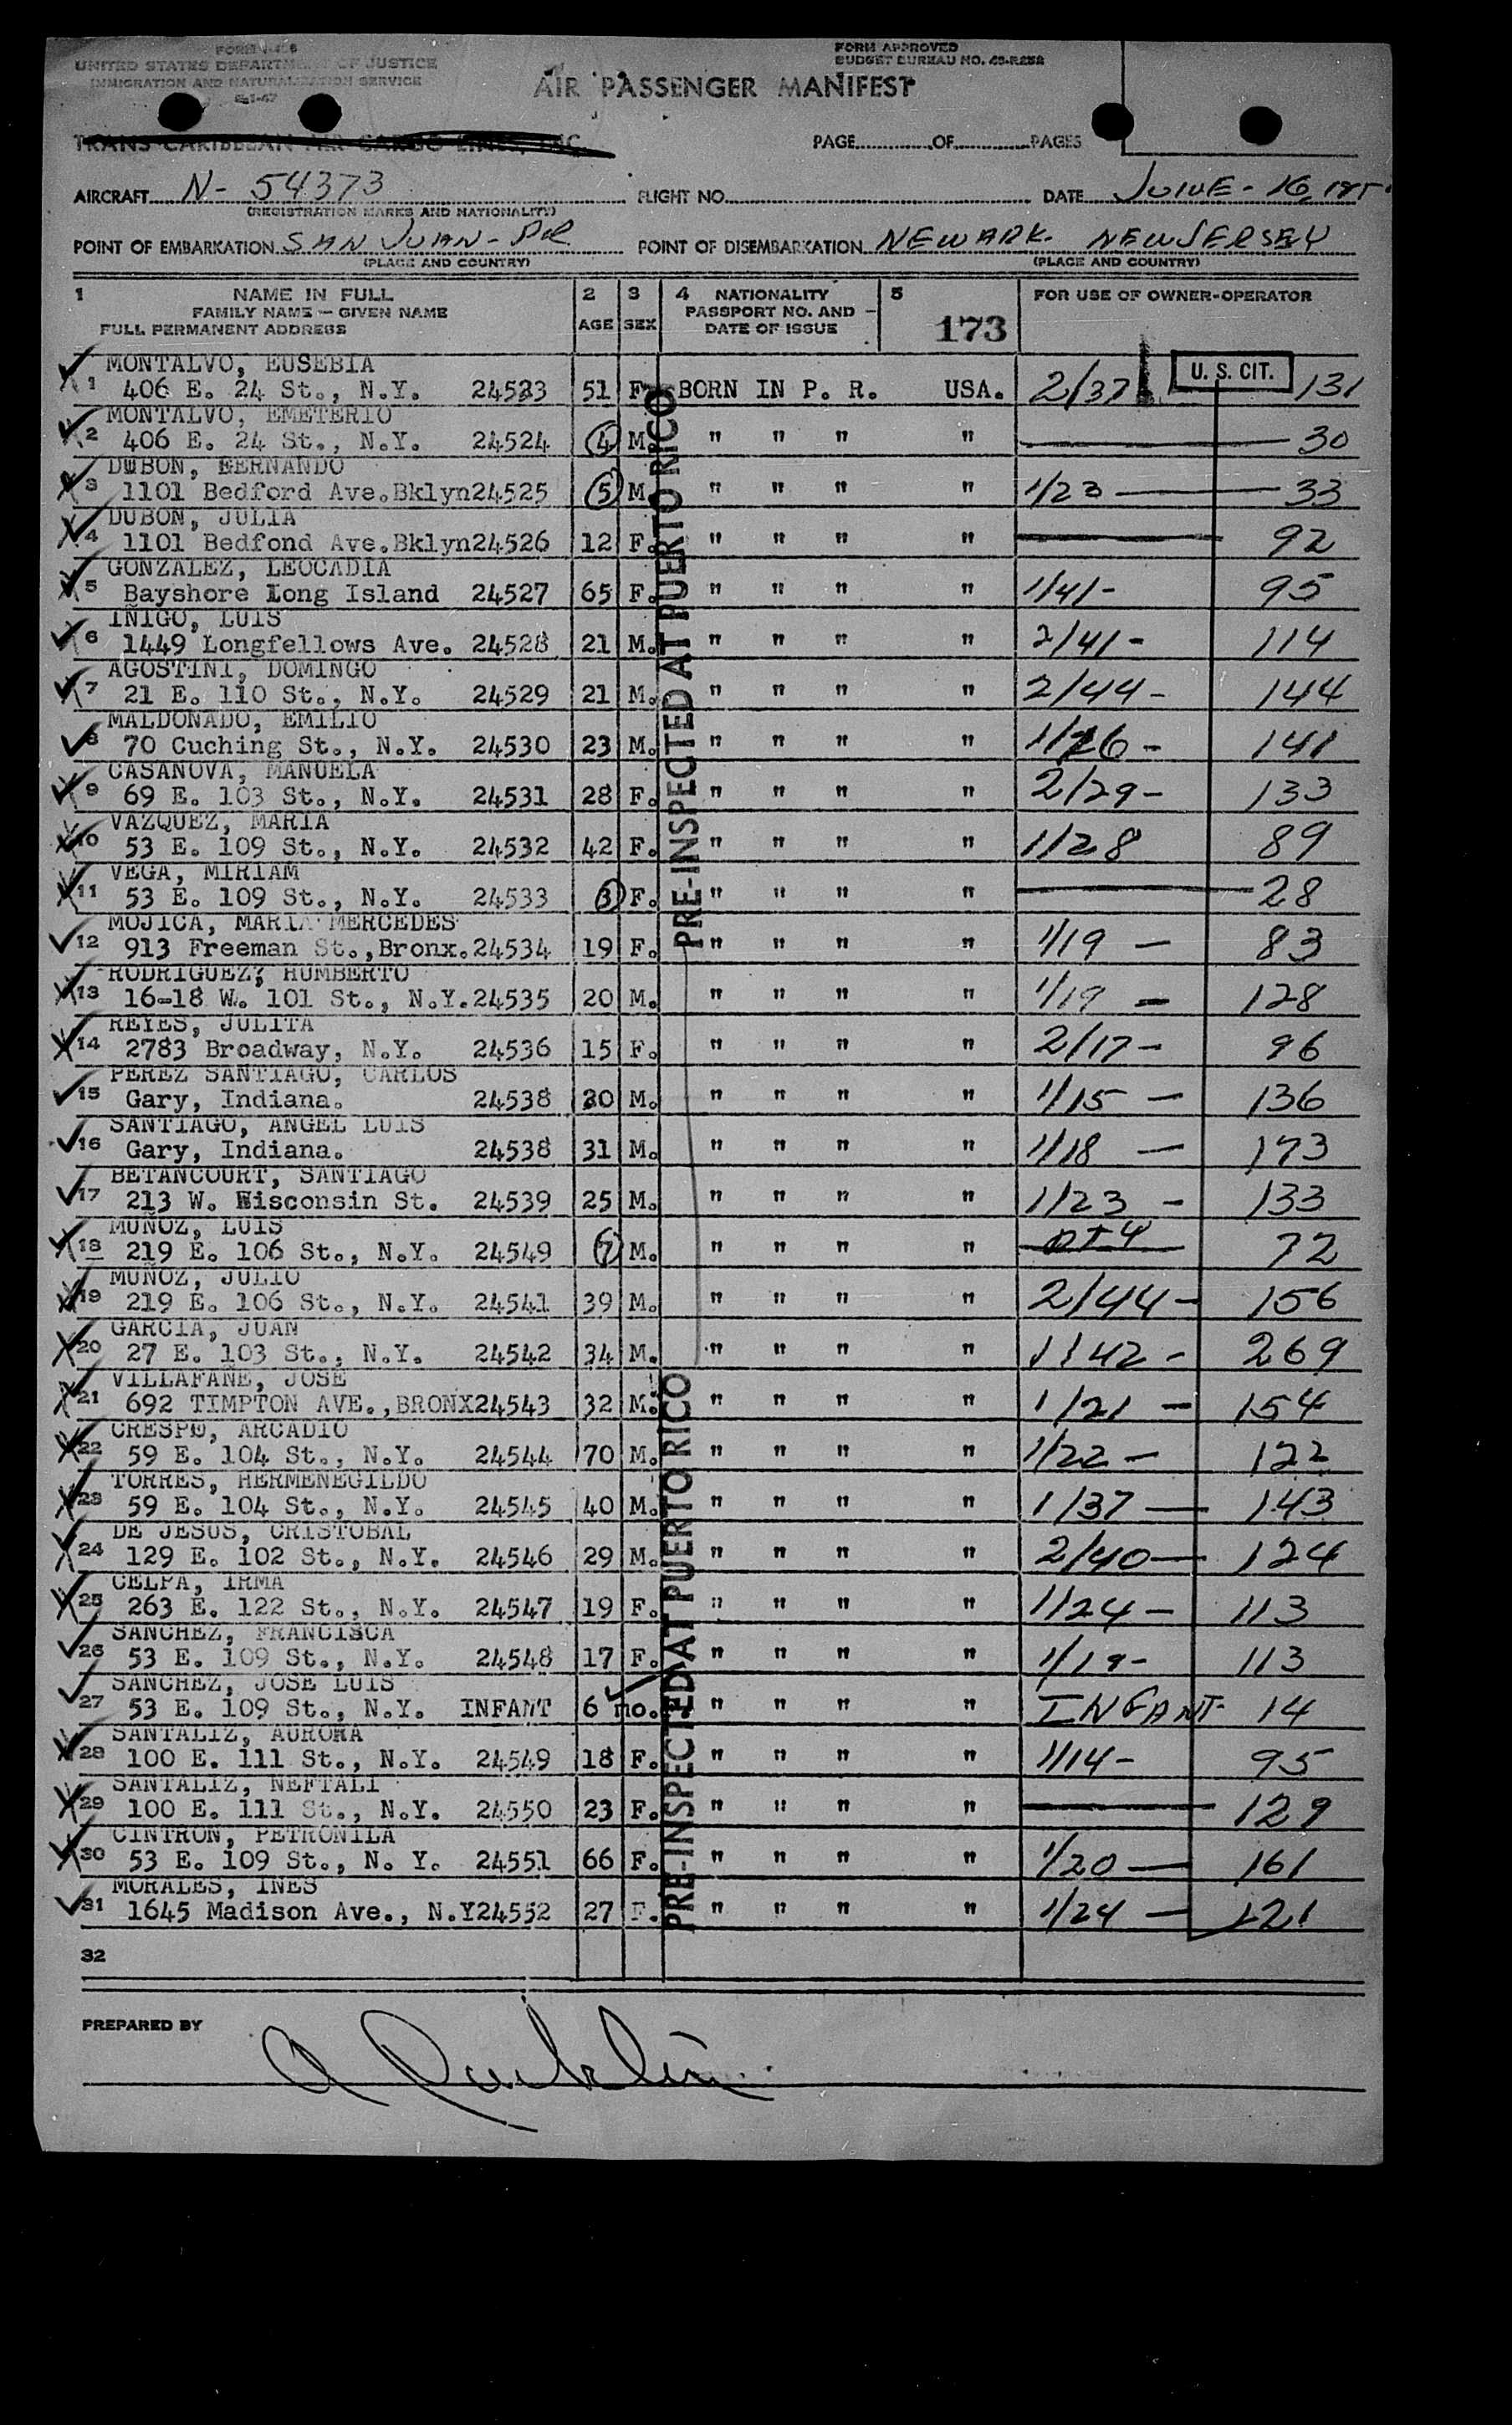 FORM I-466
UNITED STATES DEPARTMENT OF JUSTICE
IMMIGRATION AND NATURALIZATION SERVICE
FORM APPROVED
BUDGET BUREAU NO. 43-R252
AIR PASSENGER MANIFEST
TRANS CARIBBEAN AIR CARGO LINES, INC.
PAGE..............OF..............PAGES
AIRCRAFT N- 54373 FLIGHT NO. DATE JUNE - 16,
(REGISTRATION MARKS AND NATIONALITY)
POINT OF EMBARKATION SAN JUAN - PR POINT OF DISEMBARKATION NEWARK. NEW JERSEY
(PLACE AND COUNTRY) (PLACE AND COUNTRY)
1 NAME IN FULL 2 3 4 NATIONALITY 5 FOR USE OF OWNER-OPERATOR
FAMILY NAME — GIVEN NAME AGE SEX PASSPORT NO. AND
FULL PERMANENT ADDRESS DATE OF ISSUE 173
PRE-INSPECTED AT PUERTO RICO
U. S. CIT.
MONTALVO, EUSEBIA
1 406 E. 24 St., N.Y. 24523 51 F. BORN IN P. R. USA. 2/37 131
MONTALVO, EMETERIO
2 406 E. 24 St., N.Y. 24524 4 M. " " " " 30
DUBON, FERNANDO
3 1101 Bedford Ave.Bklyn24525 5 M. " " " " 1/23 — 33
DUBON, JULIA
4 1101 Bedfond Ave.Bklyn24526 12 F. " " " " 92
GONZALEZ, LEOCADIA
5 Bayshore Long Island 24527 65 F. " " " " 1/41- 95
IÑIGO, LUIS
6 1449 Longfellows Ave. 24528 21 M. " " " " 2/41- 114
AGOSTINI, DOMINGO
7 21 E. 110 St., N.Y. 24529 21 M. " " " " 2/44- 144
MALDONADO, EMILIO
8 70 Cuching St., N.Y. 24530 23 M. " " " " 1/26- 141
CASANOVA, MANUELA
9 69 E. 103 St., N.Y. 24531 28 F. " " " " 2/29- 133
VAZQUEZ, MARIA
10 53 E. 109 St., N.Y. 24532 42 F. " " " " 1/28 89
VEGA, MIRIAM
11 53 E. 109 St., N.Y. 24533 3 F. " " " " 28
MOJICA, MARIA MERCEDES
12 913 Freeman St.,Bronx.24534 19 F. " " " " 1/19 — 83
RODRIGUEZ, HUMBERTO
13 16-18 W. 101 St., N.Y.24535 20 M. " " " " 1/19 — 128
REYES, JULITA
14 2783 Broadway, N.Y. 24536 15 F. " " " " 2/17- 96
PEREZ SANTIAGO, CARLOS
15 Gary, Indiana. 24538 30 M. " " " " 1/15 — 136
SANTIAGO, ANGEL LUIS
16 Gary, Indiana. 24538 31 M. " " " " 1/18 — 173
BETANCOURT, SANTIAGO
17 213 W. Wisconsin St. 24539 25 M. " " " " 1/23 - 133
MUÑOZ, LUIS
18 219 E. 106 St., N.Y. 24549 7 M. " " " " 72
MUÑOZ, JULIO
19 219 E. 106 St., N.Y. 24541 39 M. " " " " 2/44- 156
GARCIA, JUAN
20 27 E. 103 St., N.Y. 24542 34 M. " " " " 1/42- 269
VILLAFAÑE, JOSE
21 692 TIMPTON AVE.,BRONX24543 32 M. " " " " 1/21 — 154
CRESPO, ARCADIO
22 59 E. 104 St., N.Y. 24544 70 M. " " " " 1/22- 122
TORRES, HERMENEGILDO
23 59 E. 104 St., N.Y. 24545 40 M. " " " " 1/37 — 143
DE JESUS, CRISTOBAL
24 129 E. 102 St., N.Y. 24546 29 M. " " " " 2/40 — 124
CELPA, IRMA
25 263 E. 122 St., N.Y. 24547 19 F. " " " " 1/24- 113
SANCHEZ, FRANCISCA
26 53 E. 109 St., N.Y. 24548 17 F. " " " " 1/19- 113
SANCHEZ, JOSE LUIS
27 53 E. 109 St., N.Y. INFANT 6 mo. " " " " INFANT- 14
SANTALIZ, AURORA
28 100 E. 111 St., N.Y. 24549 18 F. " " " " 1/14- 95
SANTALIZ, NEFTALI
29 100 E. 111 St., N.Y. 24550 23 F. " " " " 129
CINTRON, PETRONILA
30 53 E. 109 St., N. Y. 24551 66 F. " " " " 1/20 — 161
MORALES, INES
31 1645 Madison Ave., N.Y24552 27 F. " " " " 1/24 — 121
PRE-INSPECTED AT PUERTO RICO
32
PREPARED BY